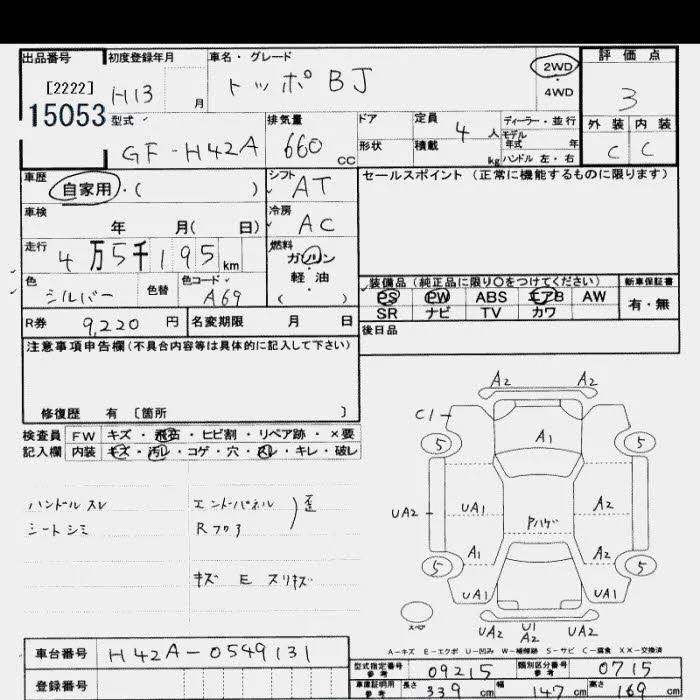 出品番号 初度登録年月 車名・グレード 評価点
[2222] H13 月 トッポBJ 2WD 3
15053 4WD
型式 排気量 ドア 定員 4 人 ディーラー・並行 外装 内装
GF-H42A 660 CC 形状 積載 kg モデル年式 年 C C
ハンドル 左・右
車歴 シフト セールスポイント (正常に機能するものに限ります)
自家用・( ) AT
車検 冷房
年 月( 日) AC
走行 燃料
4万5千195km ガソリン
軽・油
色 色替 色コード ( )
シルバー A69
装備品 (純正品に限り〇をつけてください) 新車保証書
PS PW ABS エアB AW 有・無
SR ナビ TV カワ
R券 9,220 円 名変期限 月 日 後日品
注意事項申告欄(不具合内容等は具体的に記入して下さい)
修復歴 有 [箇所 ]
検査員 FW キズ・飛石・ヒビ割・リペア跡・×要
記入欄 内装 キズ・汚レ・コゲ・穴・スレ・キレ・破レ
ハンドルスレ エンドパネル 歪
シートシミ Rフロア
キズ E スリキズ
A2 A2
C1
5 A1 5
UA2 UA1 A2
Pハゲ
A1 A2
5 5
UA1 UA1
スペア UA2 U1 UA2
A2
A-キズ E-エクボ U-凹み W-補修跡 S-サビ C-腐食 XX-交換済
車台番号 H42A-0549131
型式指定番号 参考 09215 類別区分番号 参考 0715
登録番号
車庫証明用 参考 長さ 339 cm 幅 147 cm 高さ 169 cm